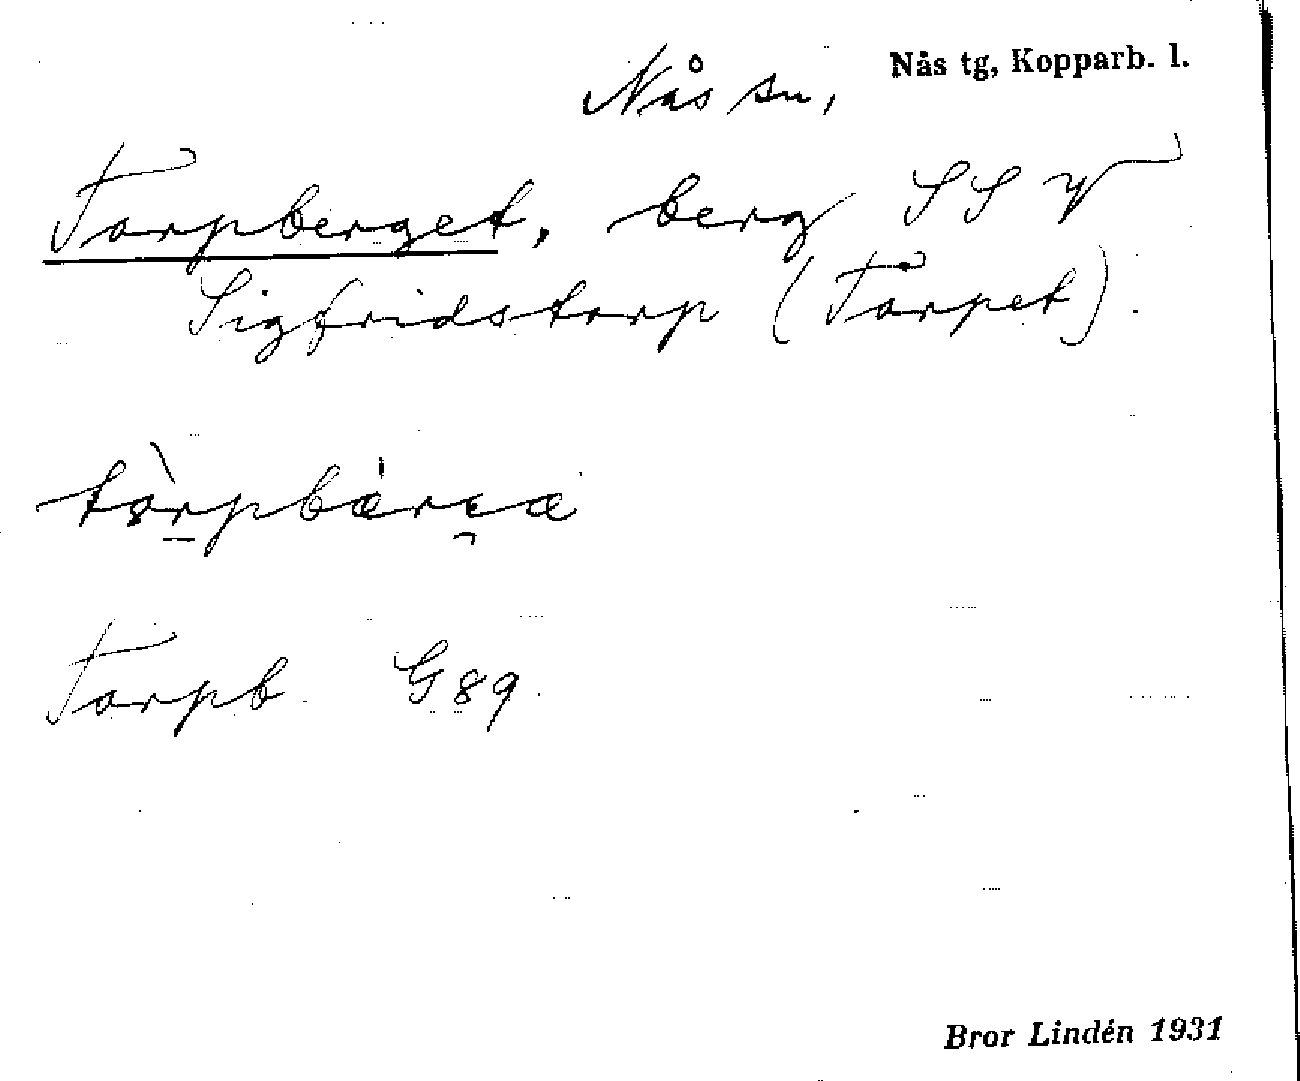 Nås sn, Nås tg, Kopparb. l.
Torpberget, berg SSV
Sigfridstorp (Torpet).
Torpb G89.
Bror Lindén 1931